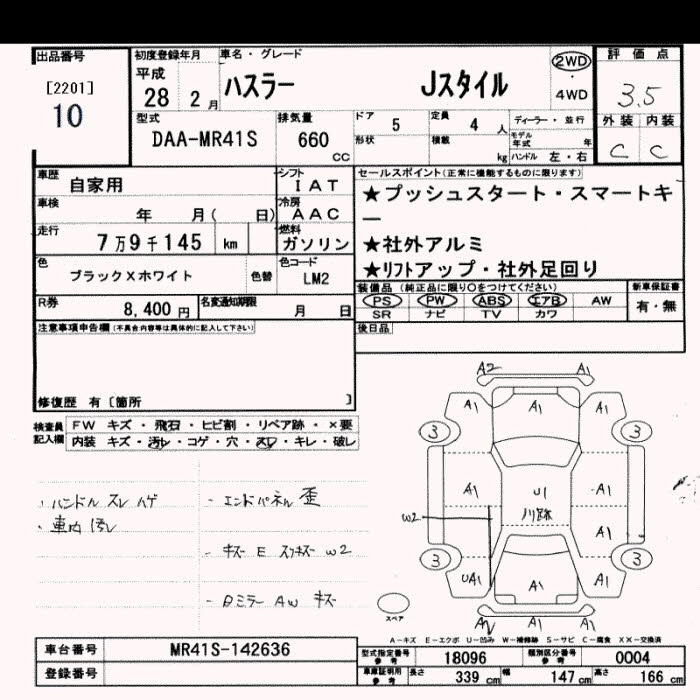 出品番号
[2201]
10
初度登録年月
平成
28 2 月
車名・グレード
ハスラー Jスタイル
2WD
・
4WD
評価点
3.5
外装 内装
C C
型式
DAA-MR41S
排気量
660
CC
ドア 5
形状
定員 4 人
積載 kg
ディーラー・並行
モデル年式 年
ハンドル 左・右
車歴
自家用
シフト
IAT
車検
年 月( 日)
冷房
AAC
走行
7万9千145 km
燃料
ガソリン
色
ブラックXホワイト 色替
色コード
LM2
R券
8,400 円
名変通知期限
月 日
セールスポイント(正常に機能するものに限ります)
★プッシュスタート・スマートキ
ー
★社外アルミ
★リフトアップ・社外足回り
装備品(純正品に限り○をつけてください)
PS PW ABS エアB AW
SR ナビ TV カワ
新車保証書
有・無
後日品
注意事項申告欄(不具合内容等は具体的に記入して下さい)
修復歴 有〔箇所 〕
検査員
記入欄
FW キズ・飛石・ヒビ割・リペア跡・×要
内装 キズ・汚レ・コゲ・穴・スレ・キレ・破レ
・ハンドル スレ ハゲ
・車内 汚レ
- エンドパネル 歪
- キズ E スリキズ W2
- Dミラー AW キズ
A2 A1
A1 A1 A1
3 3
A1 U1 A1
川跡
W2
A1
3 3
UA1 A1 A1
A1 A1
スペア
A−キズ E−エクボ U−凹み W−補修跡 S−サビ C−腐食 XX−交換済
車台番号
MR41S-142636
登録番号
型式指定番号
参考
18096
類別区分番号
参考
0004
車庫証明用
参考
長さ 339 cm
幅 147 cm
高さ 166 cm